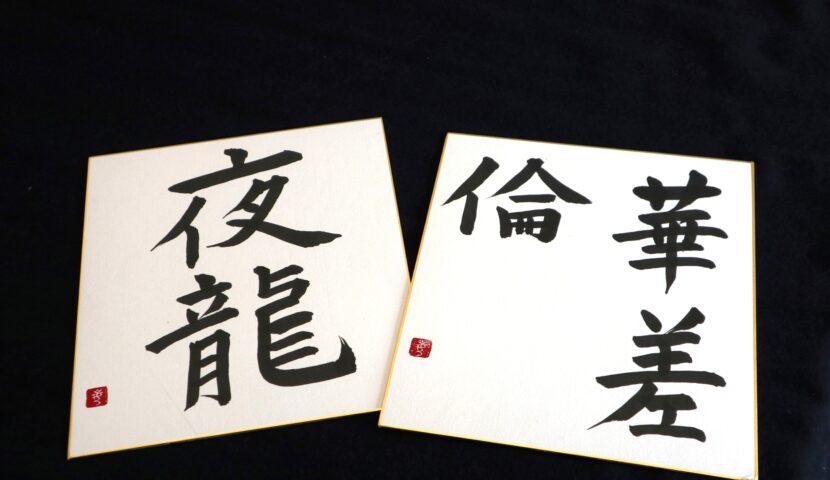 夜龍
華差
倫